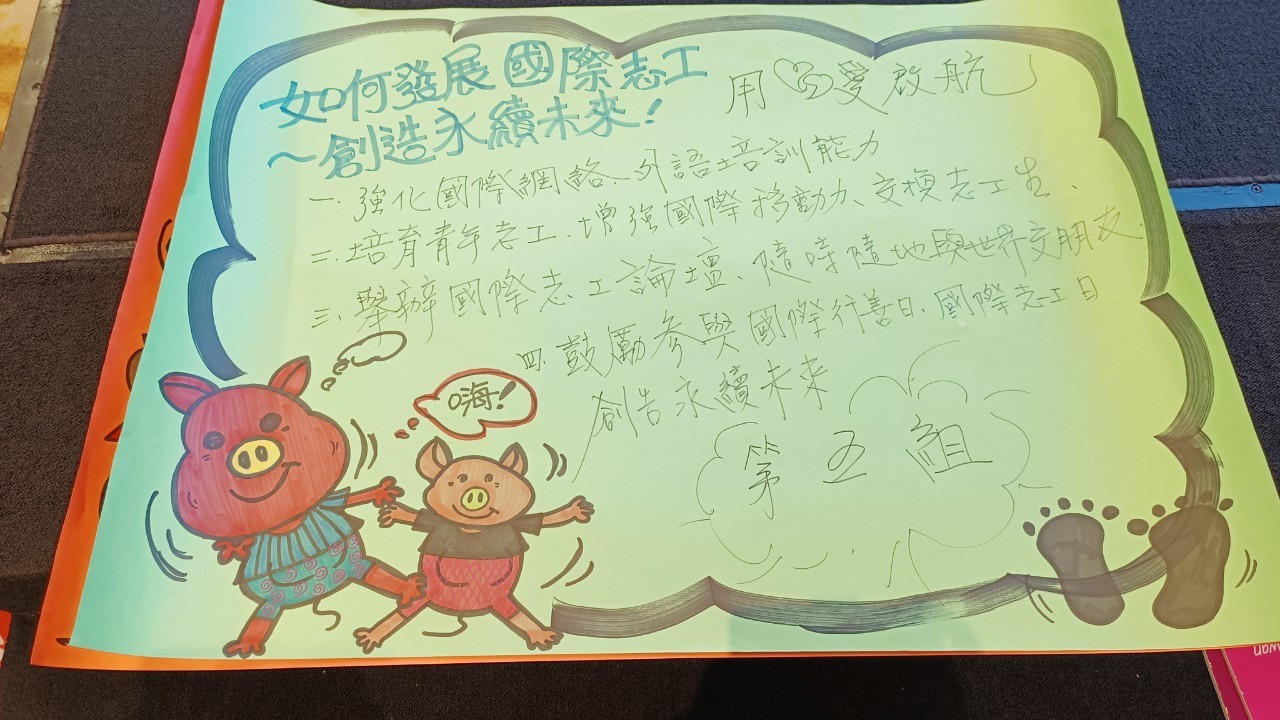 如何發展國際志工
～創造永續未來！
用心愛啟航
一. 強化國際網路、外語培訓能力
二. 培育青年志工、增強國際移動力、交換志工生、
三、舉辦國際志工論壇、隨時隨地與世界交朋友.
四. 鼓勵參與國際行善日、國際志工日
創造永續未來
嗨！
第五組
wan